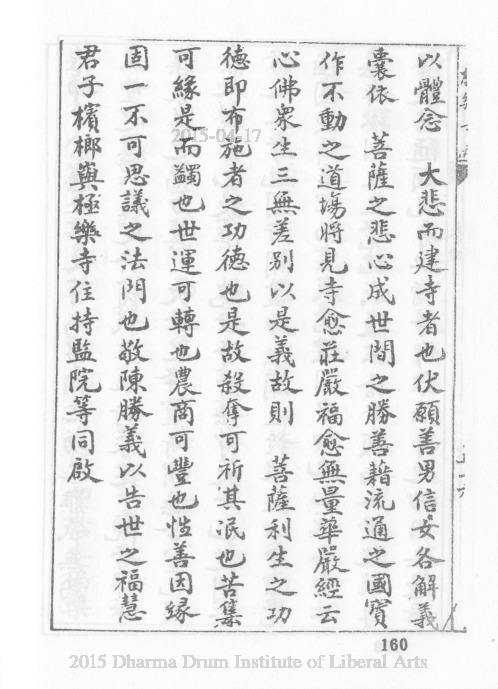 以體念　大悲而建寺者也伏願善男信女各解義
囊依　菩薩之悲心成世間之勝善藉流通之國寶
作不動之道場將見寺愈莊嚴福愈無量華嚴經云
心佛衆生三無差別以是義故則　菩薩利生之功
德即布施者之功德也是故殺奪可祈其泯也苦集
可緣是而蠲也世運可轉也農商可豐也性善因緣
固一不可思議之法門也敬陳勝義以告世之福慧
君子檳榔嶼極樂寺住持監院等同啟
160
2015-04-17
2015 Dharma Drum Institute of Liberal Arts